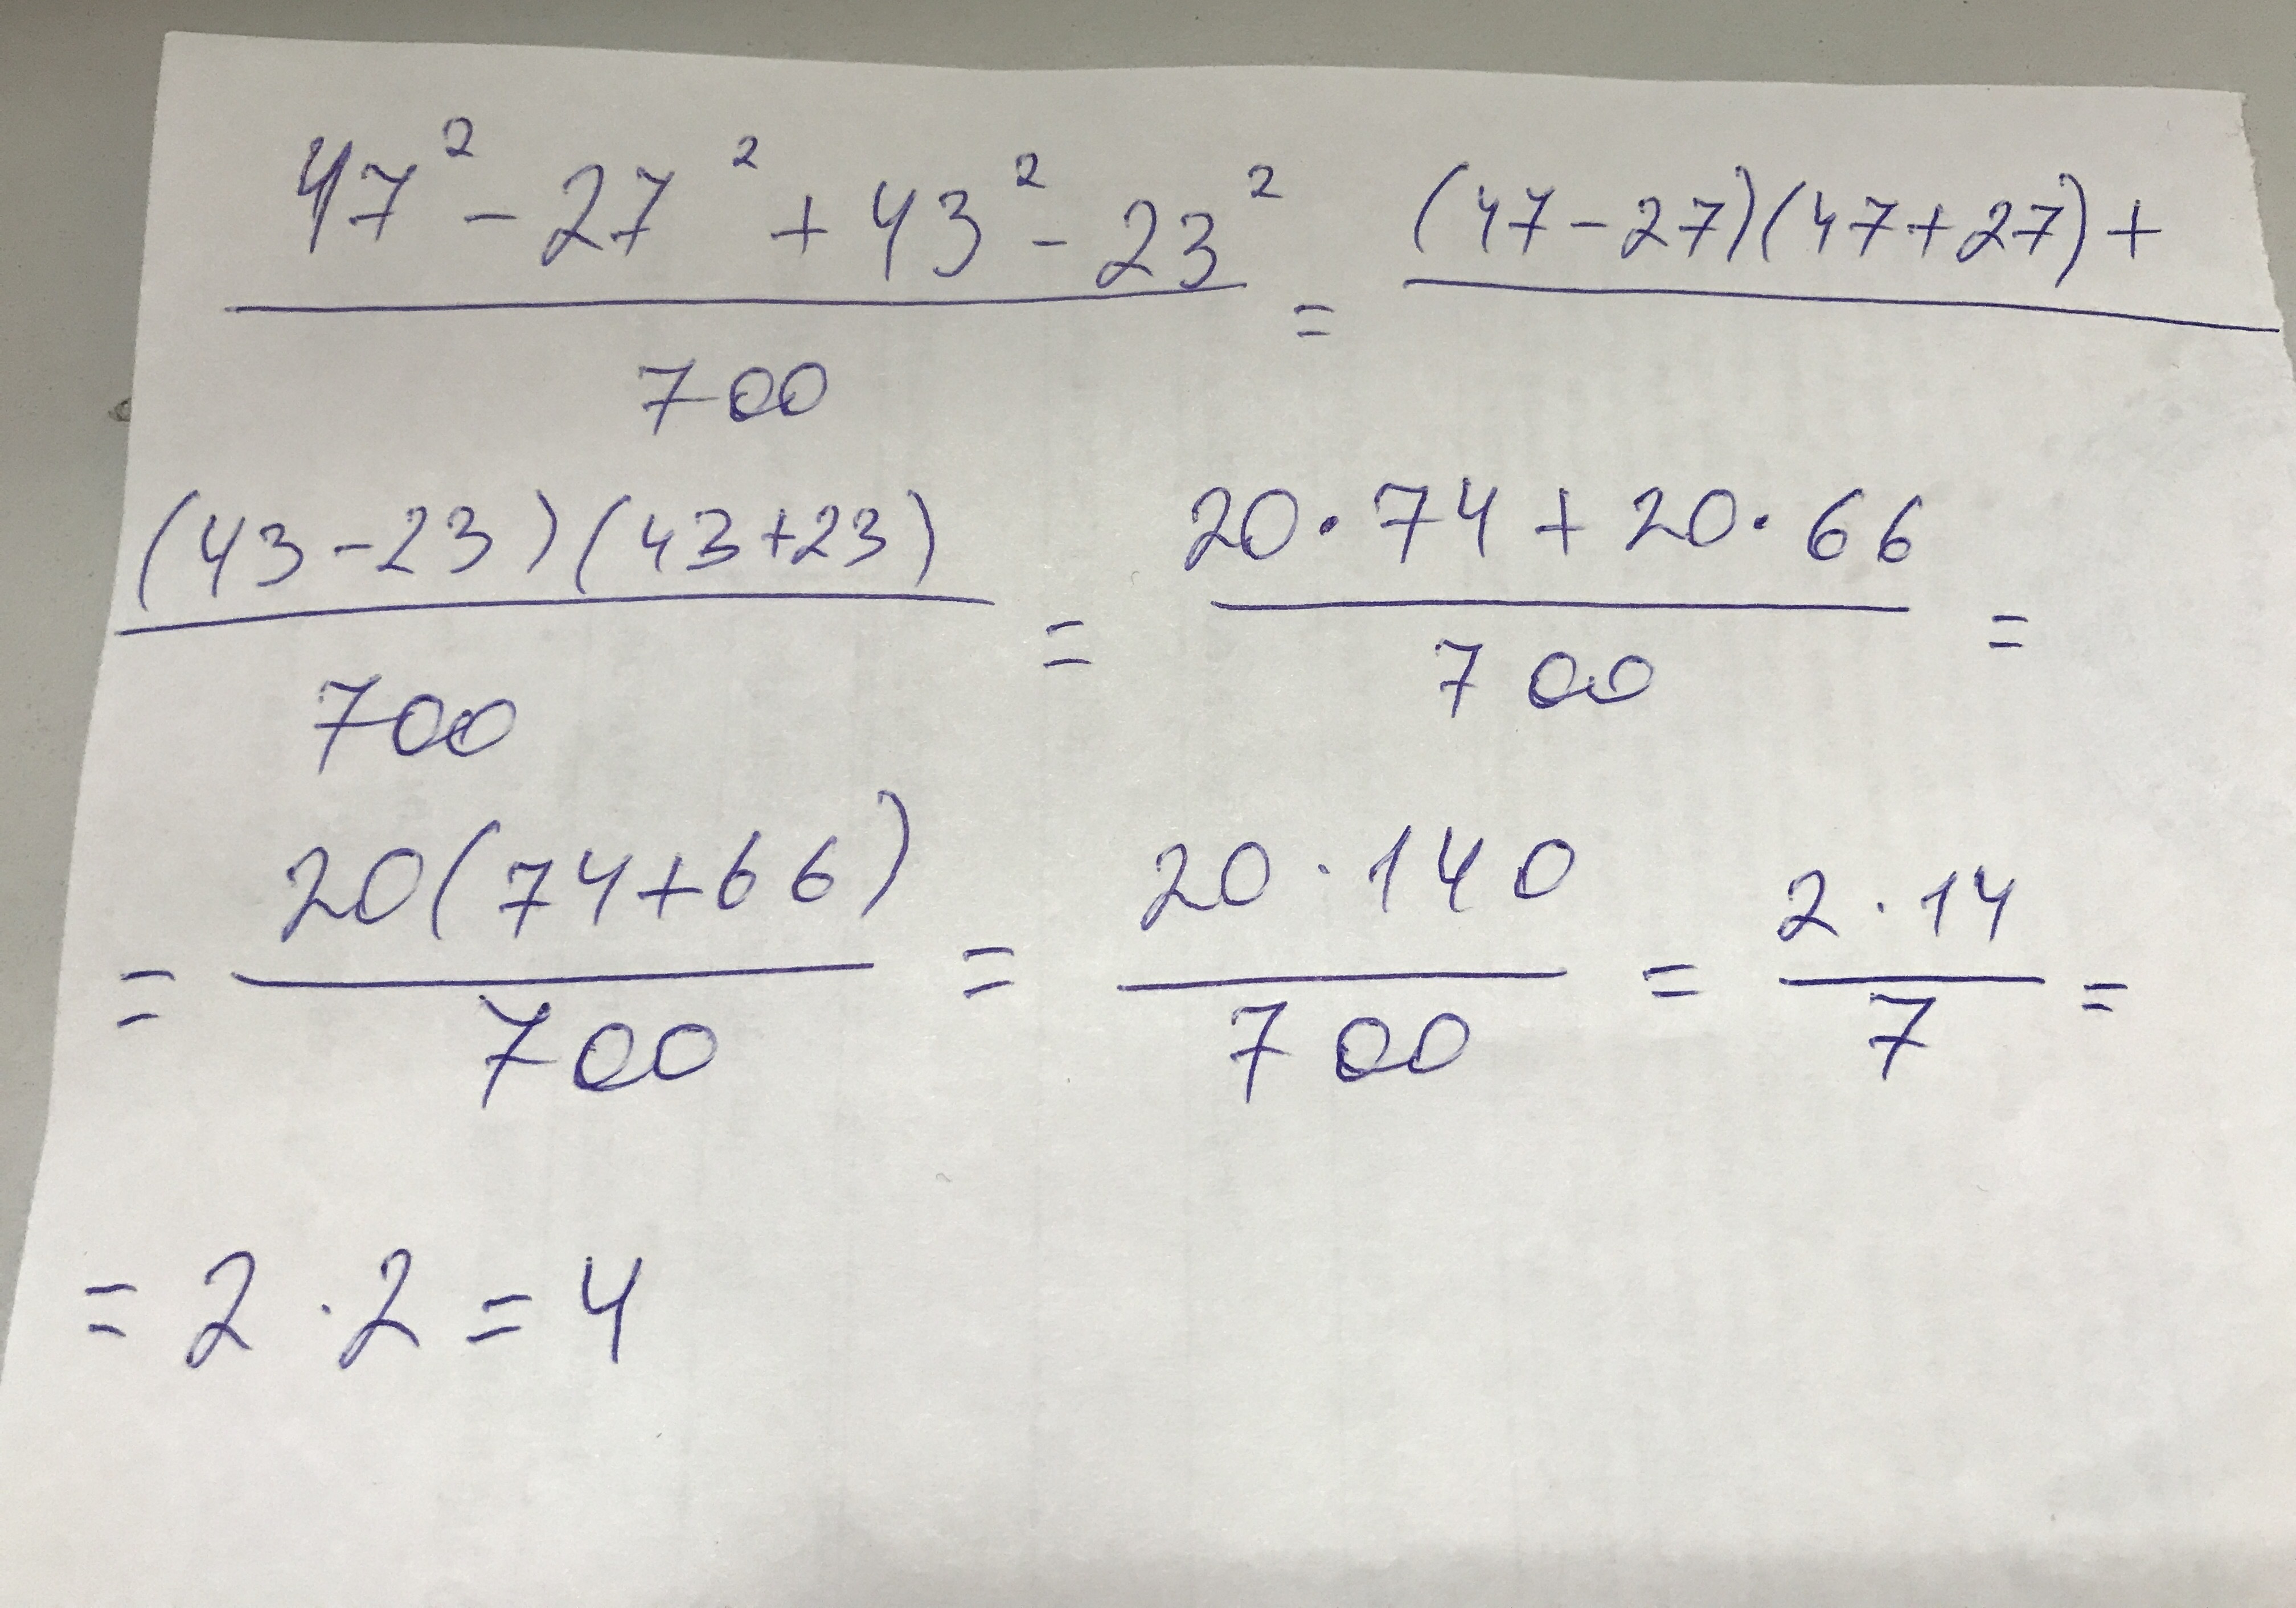 47² - 27² + 43² - 23² / 700 = (47-27)(47+27) +
(43-23)(43+23) / 700 = 20·74 + 20·66 / 700 =
= 20(74+66) / 700 = 20·140 / 700 = 2·14 / 7 =
= 2·2 = 4